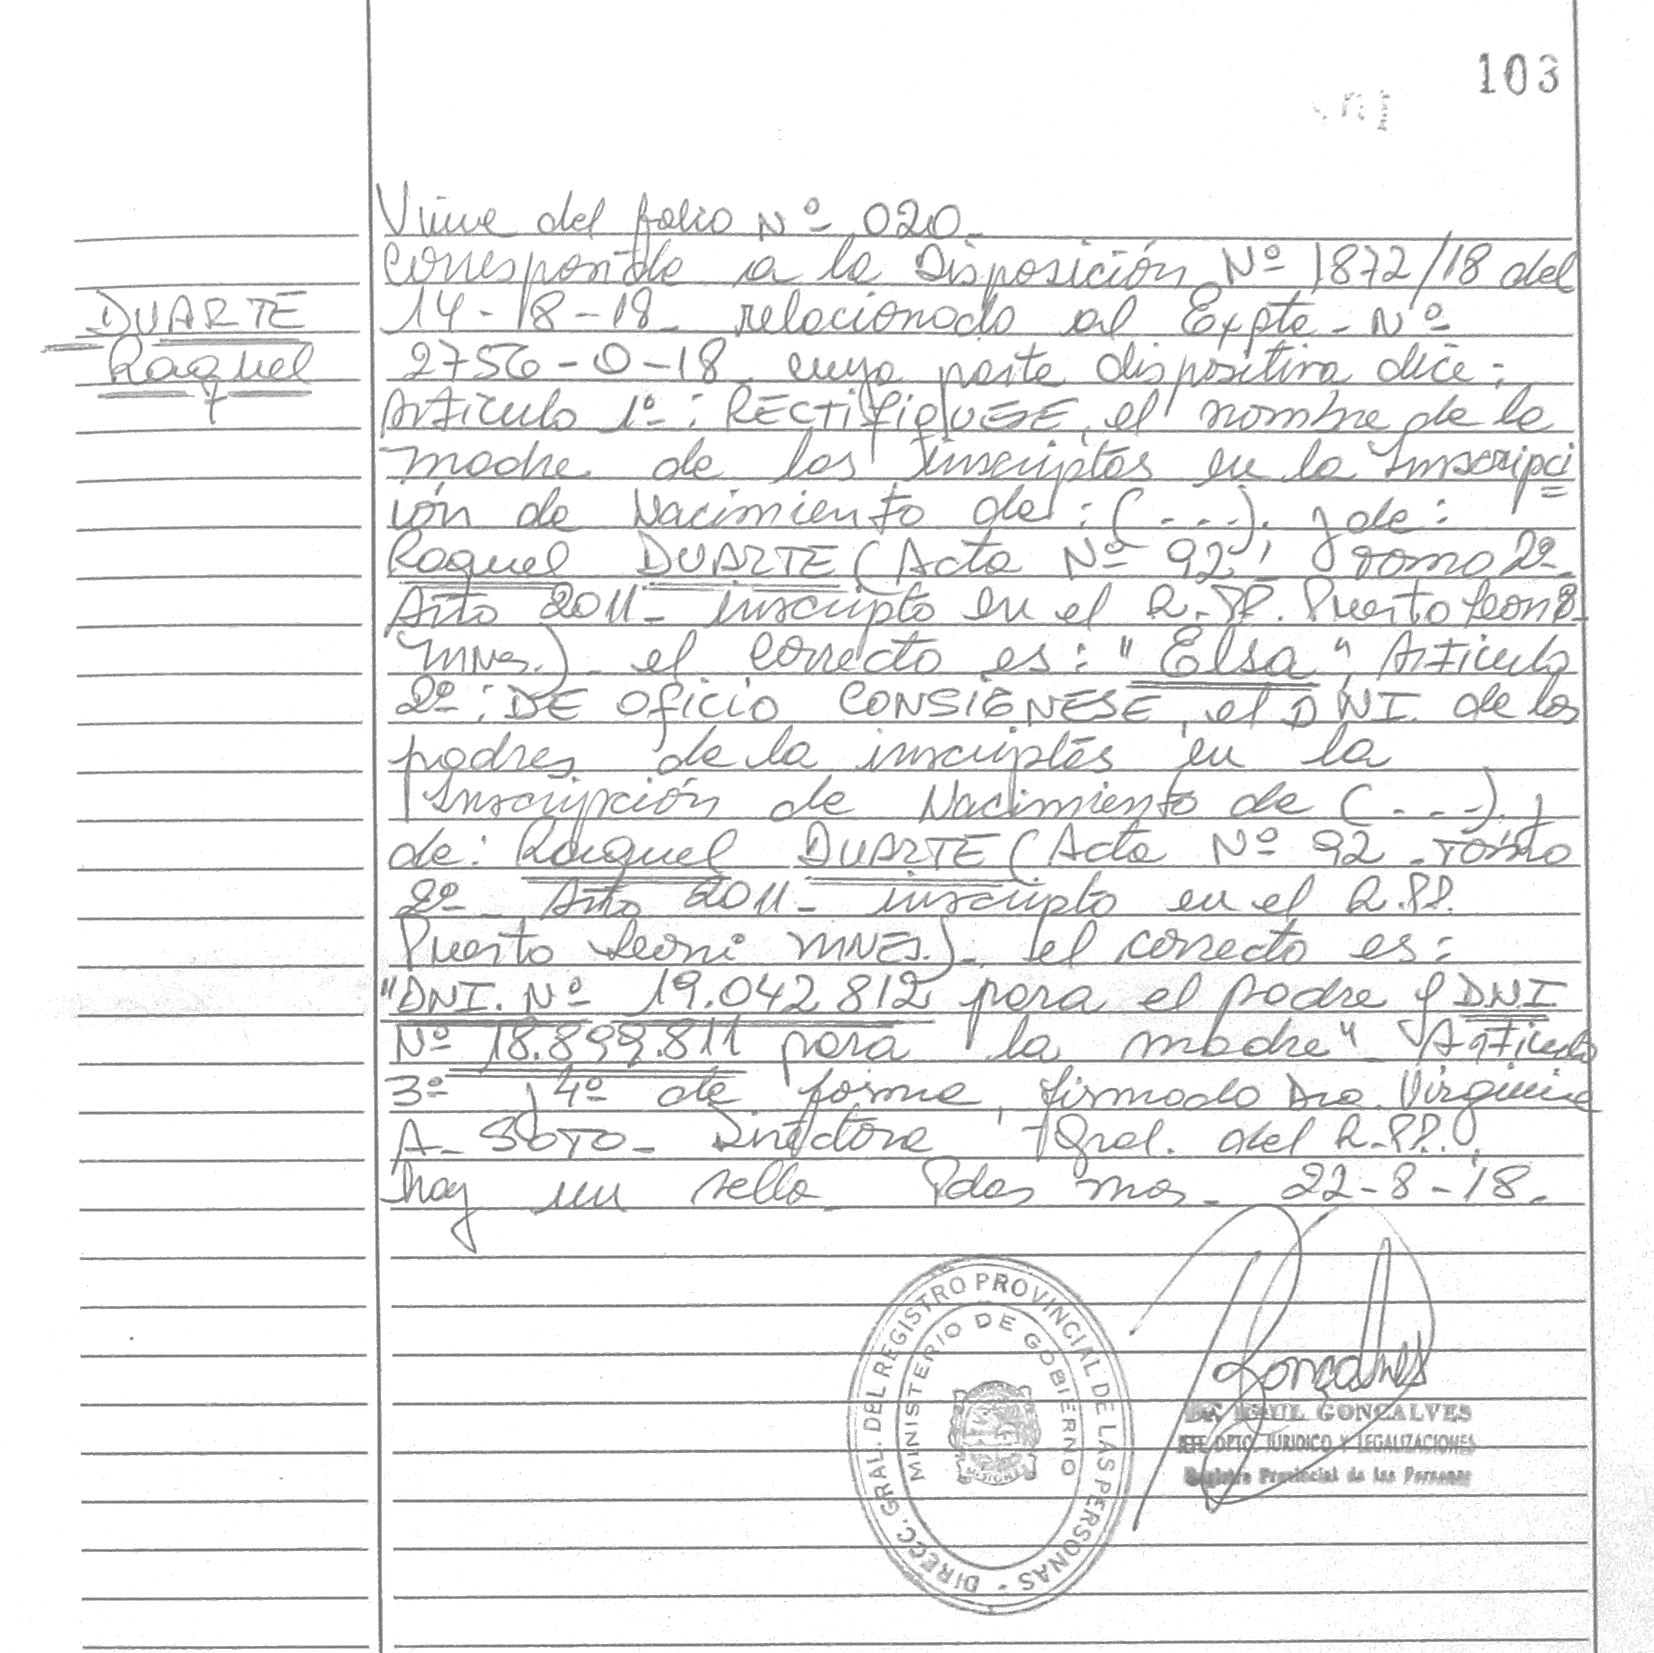 103
Viene del folio Nº 020_
corresponde a la Disposición Nº 1872/18 del
DUARTE
Raquel
14-18-18_ relacionado al Expte_ Nº
2756-0-18 cuya parte dispositiva dice:
Artículo 1º: RECTIFIQUESE, el nombre de la
madre de los inscriptos en la Inscripci
ión de Nacimiento de: (...), y de:
Raquel DUARTE (Acta Nº 92, Tomo 2º_
Año 2011_ inscripto en el R.PP. Puerto Leoni_
MNES.)_ el correcto es: "Elsa" Artículo
2º: DE OFICIO CONSIGNESE, el DNI. de los
padres de la inscriptos en la
Inscripción de Nacimiento de (...), y
de: Raquel DUARTE (Acta Nº 92_Tomo
2º_ Año 2011_ inscripto en el R.PP.
Puerto Leoni MNES.)_ el correcto es:
"DNI. Nº 19.042.812 para el padre y DNI
Nº 18.899.811 para la madre"_ Artículo
3º y 4º de forma, firmado Dra. Virginia
A_ SOTO_ Directora Gral. del R.PP.
hay un sello_ Pdas Mnes_ 22-8-18.
DIRECC. GRAL. DEL REGISTRO PROVINCIAL DE LAS PERSONAS -
MINISTERIO DE GOBIERNO
MISIONES
Gonçalves
RAUL GONCALVES
JEFE DPTO. JURIDICO Y LEGALIZACIONES
Registro Provincial de las Personas